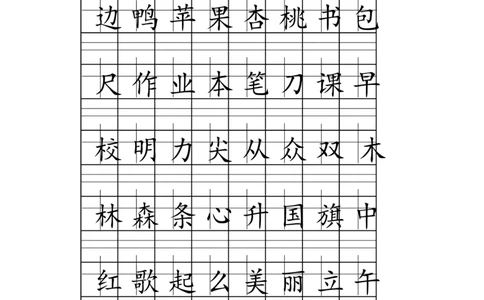 边鸭苹果杏桃书包
尺作业本笔刀课早
校明力尖从众双木
林森条心升国旗中
红歌起么美丽立午